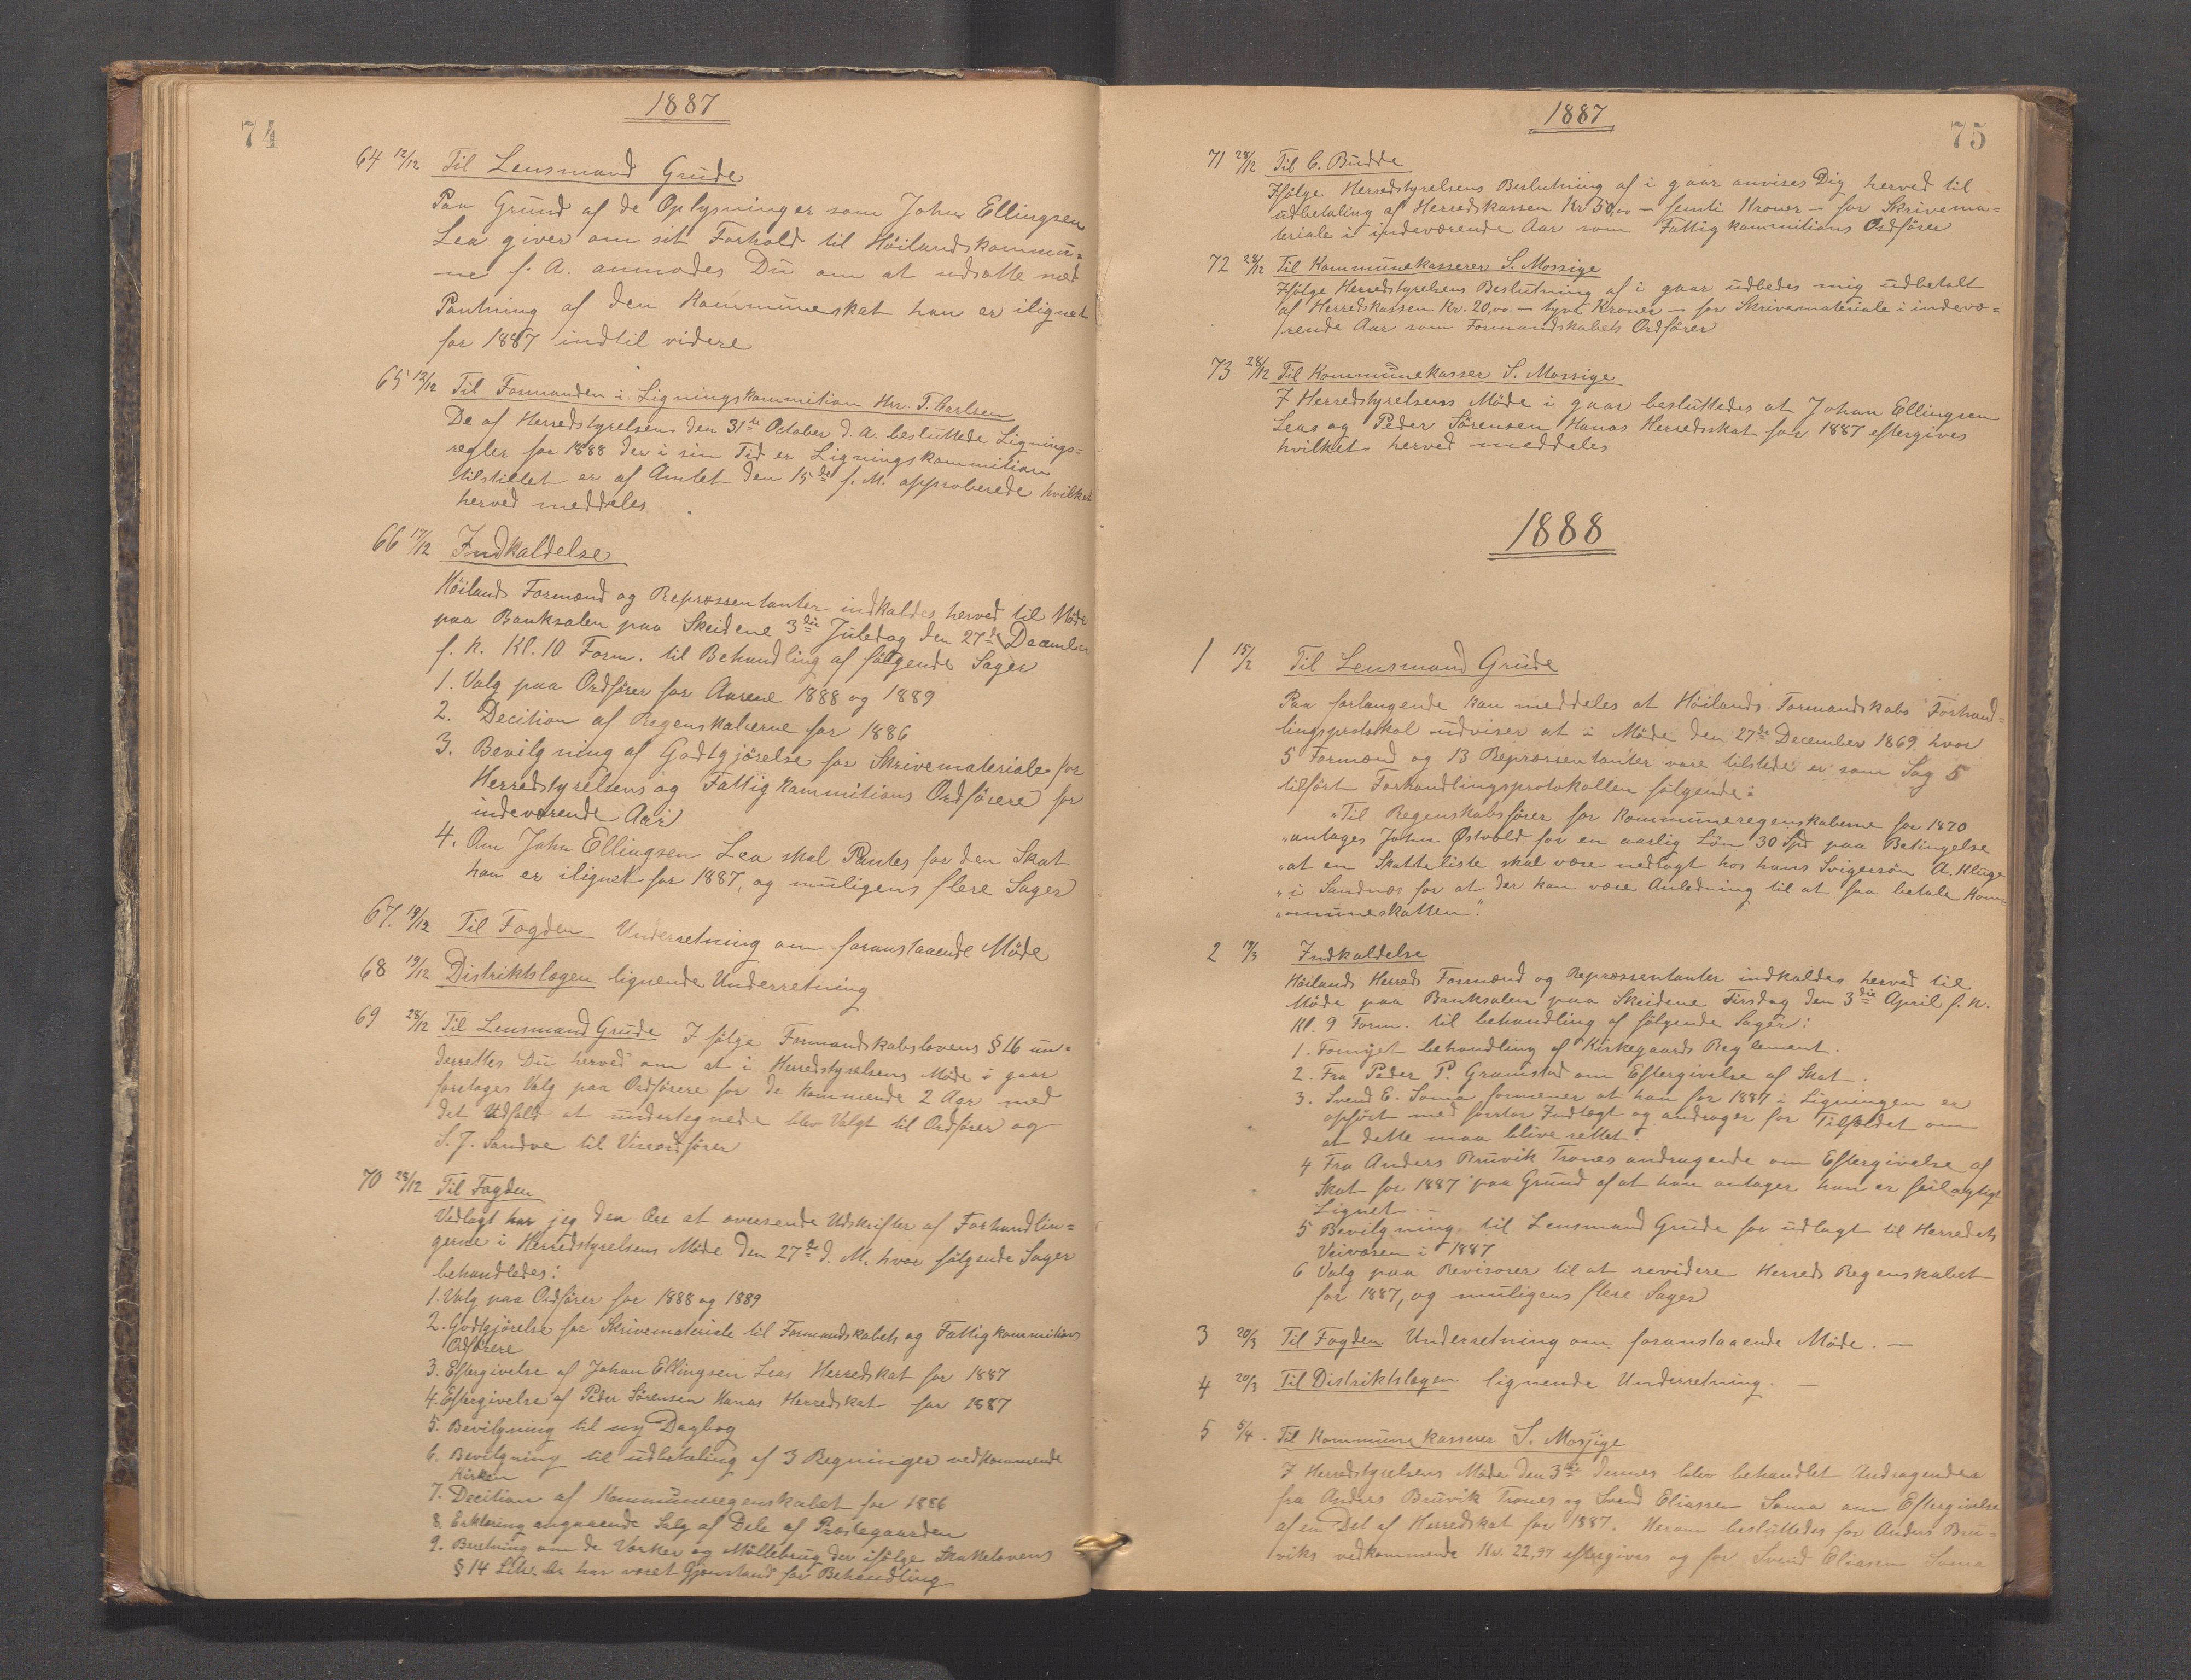 74
1887
64 12/12 Til Lensmand Grude
Paa Grund af de Oplysninger som John Ellingsen
Lea giver om sit Forhold til Höilandskommu=
ne f. A. anmodes Du om at udsætte med
Pantning af den Kommuneskat han er ilignet
for 1887 indtil videre
65 12/12 Til Formanden i Ligningskommition Hrr. T. Carlsen
De af Herredstyrelsens den 31te October d. A. besluttede Lignings=
regler for 1888 der i sin Tid er Ligningskommition
tilstillet er af Amtet den 15de f. M. approberede hvilket
herved meddeles
66 17/12 Indkaldelse
Höilands Formænd og Repræssentanter indkaldes herved til Möde
paa Banksalen paa Skeidene 3die Juledag den 27de December
f. k. Kl. 10 Form. til Behandling af fölgende Sager
1. Valg paa Ordförer for Aarene 1888 og 1889
2. Decition af Regenskaberne for 1886
3. Bevilgning af Godtgjörelse for Skrivemateriale for
Herredstyrelsens og Fattigkommitions Ordförere for
indeværende Aar
4. Om John Ellingsen Lea skal Pantes for den Skat
han er ilignet for 1887, og muligens flere Sager
67. 19/12 Til Fogden Underretning om foranstaaende Möde
68 19/12 Distriktslægen lignende Underretning
69 28/12 Til Lensmand Grude I fölge Formandskabslovens § 16 un=
derrettes Du herved om at i Herredstyrelsens Möde i gaar
foretoges Valg paa Ordförere for de kommende 2 Aar med
det Udfald at undertegnede blev Valgt til Ordförer og
S. J. Sandve til Viseordförer
70 28/12 Til Fogden
Vedlagt har jeg den Ære at oversende Udskrifter af Forhandlin=
gerne i Herredstyrelsens Möde den 27de d. M. hvor fölgende Sager
behandledes:
1. Valg paa Ordförer for 1888 og 1889
2. Godtgjörelse for Skrivemateriale til Formandskabets og Fattigkommitions
Ordförere
3. Eftergivelse af Johan Ellingsen Leas Herredskat for 1887
4. Eftergivelse af Peder Sörensen Hanas Herredskat for 1887
5. Bevilgning til ny Dagbog
6. Bevilgning til udbetaling af 3 Regninger vedkommende
Kirken
7. Decition af Kommuneregenskabet for 1886
8. Erklæring angaaende Salg af Dele af Præstegaarden
9. Beretning om de Værker og Möllebrug der ifölge Skattelovens
§ 14 har været Gjenstand for Behandling
75
1887
71 28/12 Til C. Budde
Ifölge Herredstyrelsens Beslutning af i gaar anvises Dig herved til
udbetaling af Herredskassen Kr 50,00 – femti Kroner – for Skrivema=
teriale i indeværende Aar som Fattigkommitions Ordförer
72 28/12 Til Kommunekasserer S. Mossige
Ifölge Herredstyrelsens Beslutning af i gaar udbedes mig udbetalt
af Herredskassen Kr. 20,00 – tyve Kroner – for Skrivemateriale i indevæ=
rende Aar som Formandskabets Ordförer
73 28/12 Til Kommunekasser S. Mossige
I Herredstyrelsens Möde i gaar besluttedes at Johan Ellingsen
Leas og Peder Sörensen Hanas Herredsskat for 1887 eftergives
hvilket herved meddeles
1888
1 15/2 Til Lensmand Grude
Paa forlangende kan meddeles at Höilands Formandskabs Forhand=
lingsprotokol udviser at i Möde den 27de December 1869 hvor
5 Formænd og 13 Repræsentanter vare tilstede er som Sag 5
tilfört Forhandlingsprotokollen fölgende:
"Til Regenskabsförer for Kommuneregenskaberne for 1870
"antages John Østvold for en aarlig Lön 30 Spd paa Betingelse
"at en Skatteliste skal være nedlagt hos hans Svigersön A. Kluge
"i Sandnæs for at der kan være Anledning til at faa betale Kom=
"muneskatten."
2 19/3 Indkaldelse
Höilands Herreds Formænd og Repræssentanter indkaldes herved til
Möde paa Banksalen paa Skeidene Tirsdag den 3die April f. k.
Kl. 9 Form. til behandling af fölgende Sager:
1. Fornyet behandling af Kirkegaards Reglement.
2. Fra Peder P. Gramstad om Eftergivelse af Skat.
3. Svend E. Soma formener at han for 1887 i Ligningen er
opfört med forstor Indtægt og andrager for Tilfældet om
at dette maa blive rettet.
4 Fra Anders Bruvik Trones andragende om Eftergivelse af
Skat for 1887 paa Grund af at han antager han er feilagtigt
Lignet. –
5 Bevilgning til Lensmand Grude for udlagt til Herredets
Veivæsen i 1887
6 Valg paa Revisorer til at revidere Herreds Regenskabet
for 1887, og muligens flere Sager
3 20/3 Til Fogden Underretning om foranstaaende Möde. –
4 20/3 Til Distriktslægen lignende Underretning. –
5 5/4. Til Kommunekasserer S. Mossige
I Herredstyrelsens Möde den 3die dennes blev behandlet Andragender
fra Anders Bruvik Trones og Svend Eliassen Soma om Eftergivelse
af en Del af Herredskat for 1887. Herom besluttedes for Anders Bru=
viks vedkommende Kr. 22,97 eftergives og for Svend Eliasen Soma